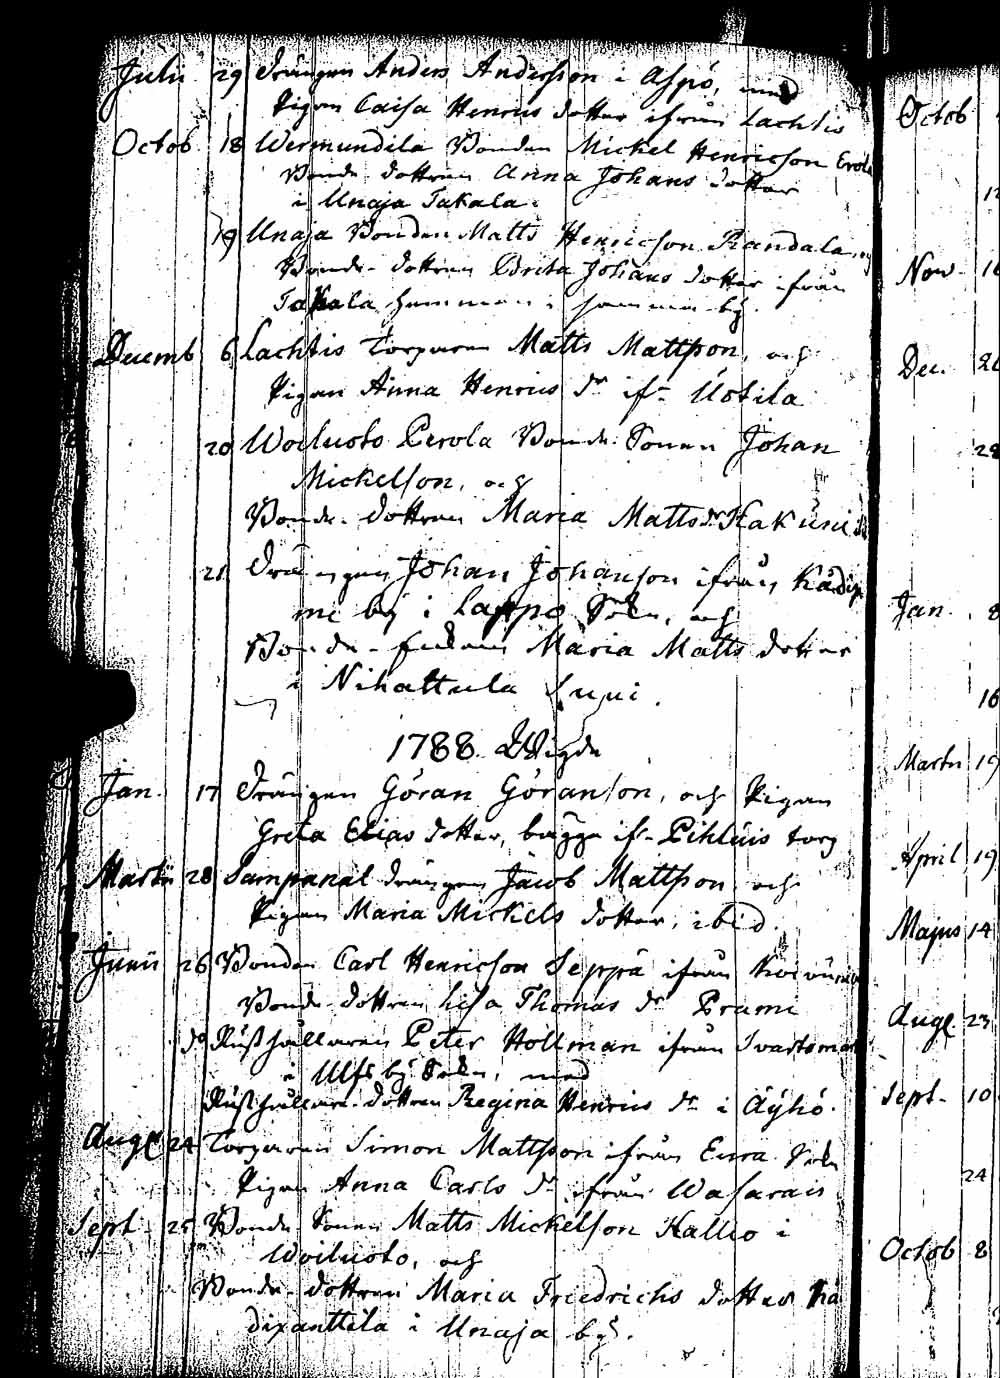 Julii 29 Drängen Anders Andersson i Aspö, med
Pigan Caisa Henrics dotter ifrån Lachtis
Octob. 18 Wermundila Bonden Mickel Henricson Erola
Bonde-dottren Anna Johans dotter
i Unaja Takala.
19 Unaja Bonden Matts Henricson Randala, og
Bonde-dottren Brita Johans dotter ifrån
Takala hemman i samma by.
Decemb 6 Lachtis Torparen Matts Mattsson, och
Pigan Anna Henrics dr ifr Uotila
20 Woiluoto Perola Bonde-Sonen Johan
Mickelson, och
Bonde-dottren Maria Matts dr Kakuni
21 Drängen Johan Johanson ifrån
me by i Lappo Sokn, och
Bonde- Maria Matts dotter
i Nihattula
1788 Wigde
Jan. 17 Drängen Göran Göranson, och Pigan
Greta Elias dotter, bägge ifr Pihlais torp
Martii 28 Sampanal drängen Jacob Mattsson och
Pigan Maria Mickels dotter, ibid.
Junii 26 Bonden Carl Henricson Seppä ifrån
Bonde-dottren Lisa Thomas dr Prami
do Rusthållaren Peter Hollman ifrån Svartsmark
i Ulfsby Sokn, med
Rusthållare-dottren Regina Henrics dr i Äyhö.
Aug 24 Torparen Simon Mattsson ifrån Eura Sokn
Pigan Anna Carls dr ifrån Wasarais
Sept. 25 Bonde-Sonen Matts Mickelson Kallio i
Woiluoto, och
Bonde-dottren Maria Friedrichs dotter Kä
dixanttila i Unaja by.
Octob
Nov. 16
Dec.
Jan. 8
16
Martii 19
April 19
Majus 14
Aug 23
Sept. 10
24
Octob 8